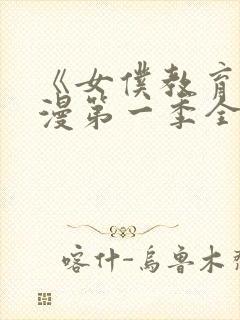 《女僕教育
漫第一季全
喀什-烏魯木齊